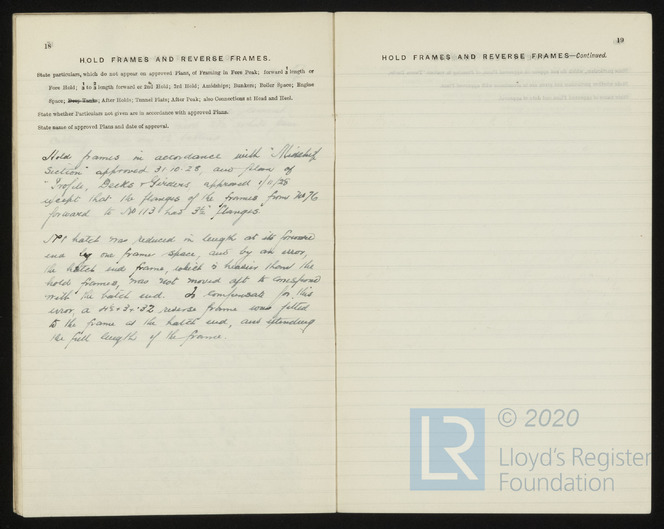 18
HOLD FRAMES AND REVERSE FRAMES.
State particulars, which do not appear on approved Plans, of Framing in Fore Peak; forward length or
Fore Hold; to length forward at Hold; 3rd Hold; Amidships; Bunkers; Boiler Space; Engine
Space; Deep Tanks; After Holds; Tunnel Flats; After Peak; also Connections at Head and Heel.
State whether Particulars not given are in accordance with approved Plans.
State name of approved Plans and date of approval.
Hold frames in accordance with "Midship
Section" approved 31.10.28, and plan of
"Profile, Decks & Girders approved 1/11/28
except that the flanges of the frames from No 76
forward to No 113 had 3½" flanges.
No 1 hatch was reduced in length at its forward
end by one frame space, and by an error,
the hatch end frame, which is heavier than the
hold frames, was not moved aft to correspond
with the hatch end. To compensate for this
error, a reverse frame was fitted
to the frame at the hatch end, and extending
the full length of the frame.
19
HOLD FRAMES AND REVERSE FRAMES—Continued.
LR
© 2020
Lloyd's Register
Foundation